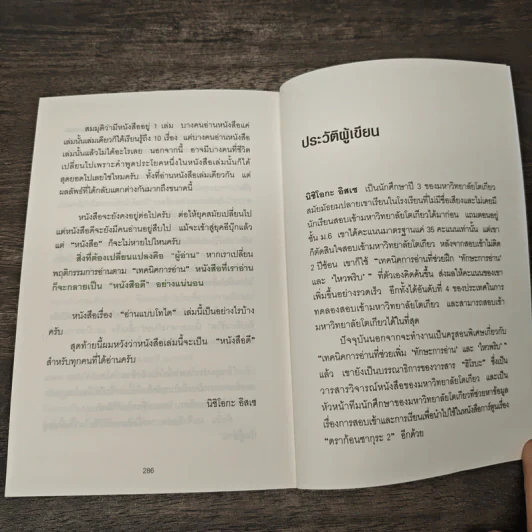 สมมุติว่ามีหนังสืออยู่ 1 เล่ม บางคนอ่านหนังสือแค่
เล่มนั้นเล่มเดียวก็ได้เรียนรู้ถึง 10 เรื่อง แต่บางคนอ่านหนังสือ
เล่มนั้นแล้วไม่ได้อะไรเลย นอกจากนี้ อาจมีบางคนที่ชีวิต
เปลี่ยนไปเพราะคำพูดประโยคหนึ่งในหนังสือเล่มนั้นก็ได้
สุดยอดไปเลยใช่ไหมครับ ทั้งที่อ่านหนังสือเล่มเดียวกัน แต่
ผลลัพธ์ที่ได้กลับแตกต่างกันมากถึงขนาดนี้
หนังสือจะยังคงอยู่ต่อไปครับ ต่อให้ยุคสมัยเปลี่ยนไป
แต่หนังสือดีจะยังมีคนอ่านอยู่สืบไป แม้จะเข้าสู่ยุคอีบุ๊กแล้ว
แต่ "หนังสือ" ก็จะไม่หายไปไหนครับ
สิ่งที่ต้องเปลี่ยนแปลงคือ "ผู้อ่าน" หากเราเปลี่ยน
พฤติกรรมการอ่านตาม "เทคนิคการอ่าน" หนังสือที่เราอ่าน
ก็จะกลายเป็น "หนังสือดี" อย่างแน่นอน
หนังสือเรื่อง "อ่านแบบโทได" เล่มนี้เป็นอย่างไรบ้าง
ครับ
สุดท้ายนี้ผมหวังว่าหนังสือเล่มนี้จะเป็น "หนังสือดี"
สำหรับทุกคนที่ได้อ่านครับ
นิชิโอกะ อิสเซ
286
ประวัติผู้เขียน
นิชิโอกะ อิสเซ เป็นนักศึกษาปี 3 ของมหาวิทยาลัยโตเกียว
สมัยมัธยมปลายเขาเรียนในโรงเรียนที่ไม่มีชื่อเสียงและไม่เคยมี
นักเรียนสอบเข้ามหาวิทยาลัยโตเกียวได้มาก่อน แถมตอนอยู่
ชั้น ม.6 เขาได้คะแนนมาตรฐานแค่ 35 คะแนนเท่านั้น แต่เขา
ก็ตัดสินใจสอบเข้ามหาวิทยาลัยโตเกียว หลังจากสอบเข้าไม่ติด
2 ปีซ้อน เขาก็ใช้ "เทคนิคการอ่านที่ช่วยฝึก 'ทักษะการอ่าน'
และ 'ไหวพริบ' " ที่ตัวเองคิดค้นขึ้น ส่งผลให้คะแนนของเขา
เพิ่มขึ้นอย่างรวดเร็ว อีกทั้งได้อันดับที่ 4 ของประเทศในการ
ทดลองสอบเข้ามหาวิทยาลัยโตเกียว และสามารถสอบเข้า
มหาวิทยาลัยโตเกียวได้ในที่สุด
ปัจจุบันนอกจากจะทำงานเป็นครูสอนพิเศษเกี่ยวกับ
"เทคนิคการอ่านที่ช่วยเพิ่ม 'ทักษะการอ่าน' และ 'ไหวพริบ' "
แล้ว เขายังเป็นบรรณาธิการของวารสาร "ชิโรบะ" ซึ่งเป็น
วารสารวิจารณ์หนังสือของมหาวิทยาลัยโตเกียว และเป็น
หัวหน้าทีมนักศึกษาของมหาวิทยาลัยโตเกียวที่ช่วยหาข้อมูล
เรื่องการสอบเข้าและการเรียนเพื่อนำไปใช้ในหนังสือการ์ตูนเรื่อง
"ดราก้อนซากุระ 2" อีกด้วย